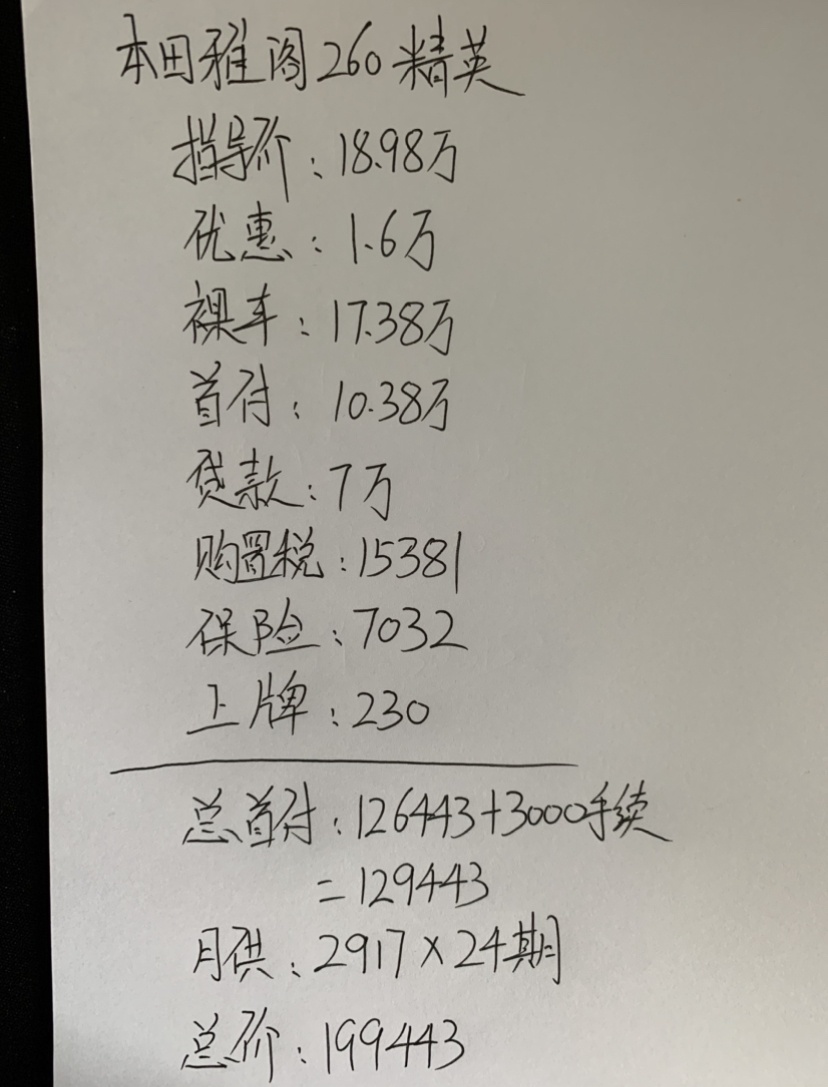 本田雅阁260精英
指导价：18.98万
优惠：1.6万
裸车：17.38万
首付：10.38万
贷款：7万
购置税：15381
保险：7032
上牌：230
总首付：126443+3000手续
=129443
月供：2917×24期
总价：199443